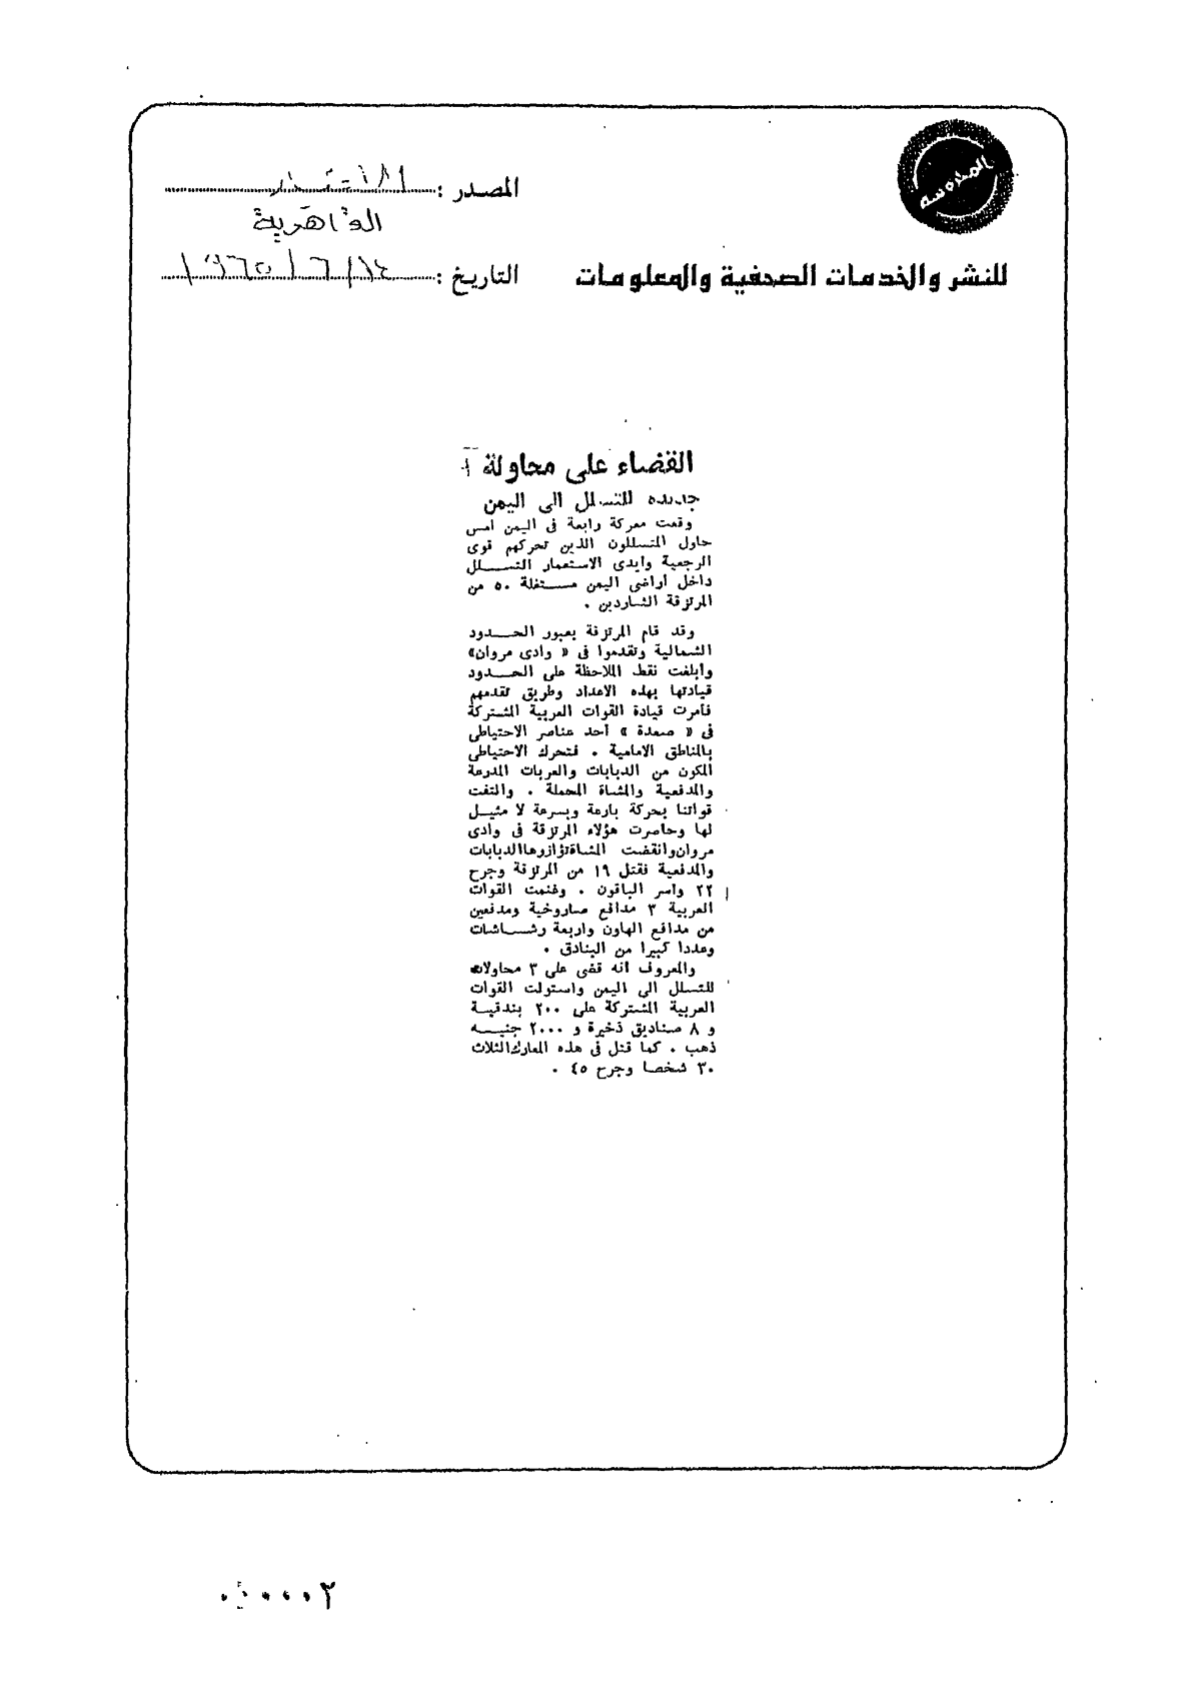 المحروسة
المصدر :
القاهرية
للنشر والخدمات الصحفية والمعلومات
التاريخ : ١٤ / ٦ / ١٩٦٥
القضاء على محاولة
جديده للتسلل الى اليمن
وقعت معركة رابعة فى اليمن امس
حاول المتسللون الذين تحركهم قوى
الرجعية وايدى الاستعمار التسلل
داخل اراضى اليمن مستغلة ٥٠ من
المرتزقة الشاردين .
وقد قام المرتزقة بعبور الحدود
الشمالية وتقدموا فى « وادى مروان»
وأبلغت نقط الملاحظة على الحدود
قيادتها بهذه الاعداد وطريق تقدمهم
فأمرت قيادة القوات العربية المشتركة
فى « صعدة » أحد عناصر الاحتياطى
بالمناطق الامامية . فتحرك الاحتياطى
المكون من الدبابات والعربات المدرعة
والمدفعية والمشاة المحملة . والتفت
قواتنا بحركة بارعة وبسرعة لا مثيل
لها وحاصرت هؤلاء المرتزقة فى وادى
مروان وانقضت المشاة تؤازرها الدبابات
والمدفعية فقتل ١٩ من المرتزقة وجرح
٢٢ واسر الباقون . وغنمت القوات
العربية ٣ مدافع صاروخية ومدفعين
من مدافع الهاون واربعة رشاشات
وعددا كبيرا من البنادق .
والمعروف انه قضى على ٣ محاولات
للتسلل الى اليمن واستولت القوات
العربية المشتركة على ٢٠٠ بندقية
و ٨ صناديق ذخيرة و ٢٠٠٠ جنيه
ذهب . كما قتل فى هذه المعارك الثلاث
٣٠ شخصا وجرح ٤٥ .